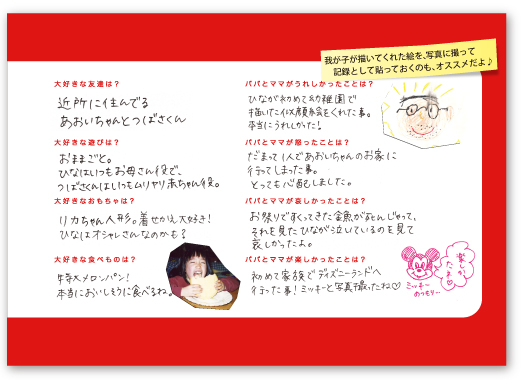 我が子が描いてくれた絵を、写真に撮って
記録として貼っておくのも、オススメだよ♪
大好きな友達は？
近所に住んでる
あおいちゃんとつばさくん
大好きな遊びは？
おままごと。
ひなはいつもお母さん役で、
つばさくんはいつもムリヤリ赤ちゃん役。
大好きなおもちゃは？
リカちゃん人形。着せかえ大好き！
ひなはオシャレさんなのかも？
大好きな食べものは？
特大メロンパン！
本当においしそうに食べるね。
パパとママがうれしかったことは？
ひなが初めて幼稚園で
描いた似顔絵をくれた事。
本当にうれしかった！
パパとママが怒ったことは？
だまって1人であおいちゃんのお家に
行ってしまった事。
とっても心配しました。
パパとママが哀しかったことは？
お祭りですくってきた金魚が死んじゃって、
それを見たひなが泣いているのを見て
哀しかったよ。
パパとママが楽しかったことは？
初めて家族でディズニーランドへ
行った事！ミッキーと写真撮ったね♡
ミッキー
のつもり…
楽しかっ
たね♡